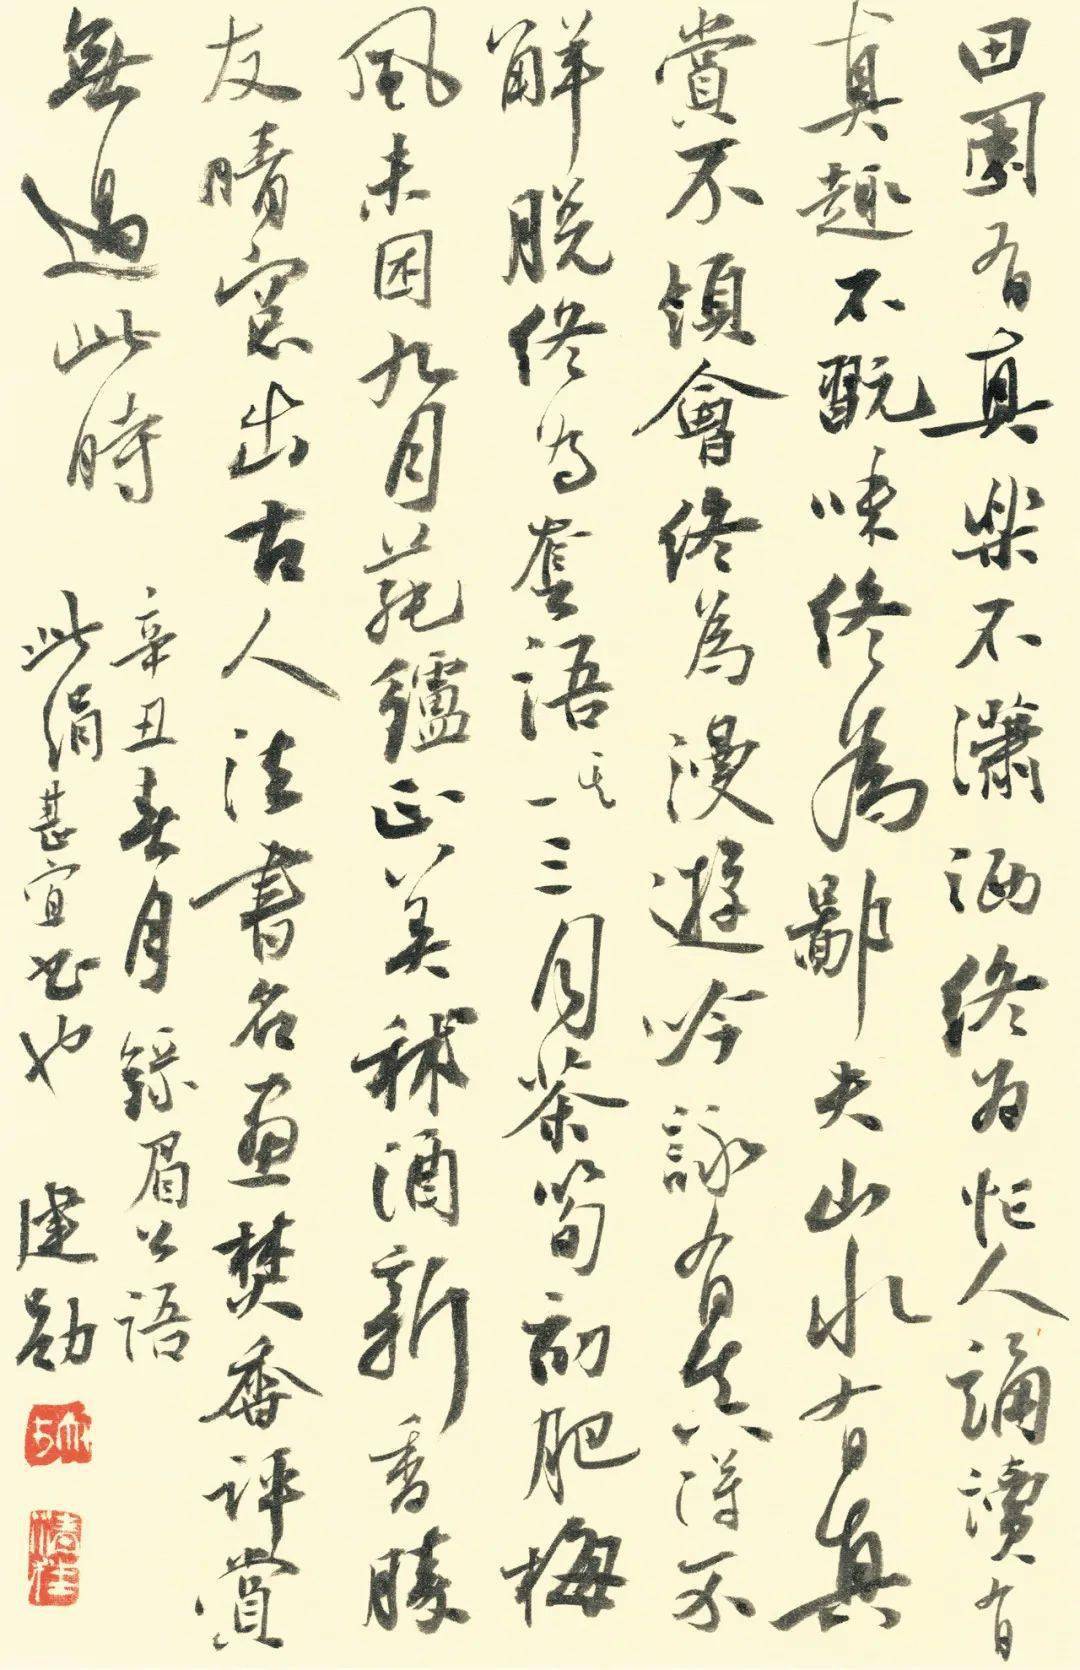 田園有真樂不瀟洒終为忙人誦讀有
真趣不翫味終為鄙夫山水有真
賞不領會終為漫遊吟詠有真得不
解脫終为套語其一三月茶筍初肥梅
風未困九月莼鱸正美秫酒新香勝
友晴窓出古人法書名画焚香評賞
無過此時
辛丑春月錄眉公語
此絹甚宜书也 建勋